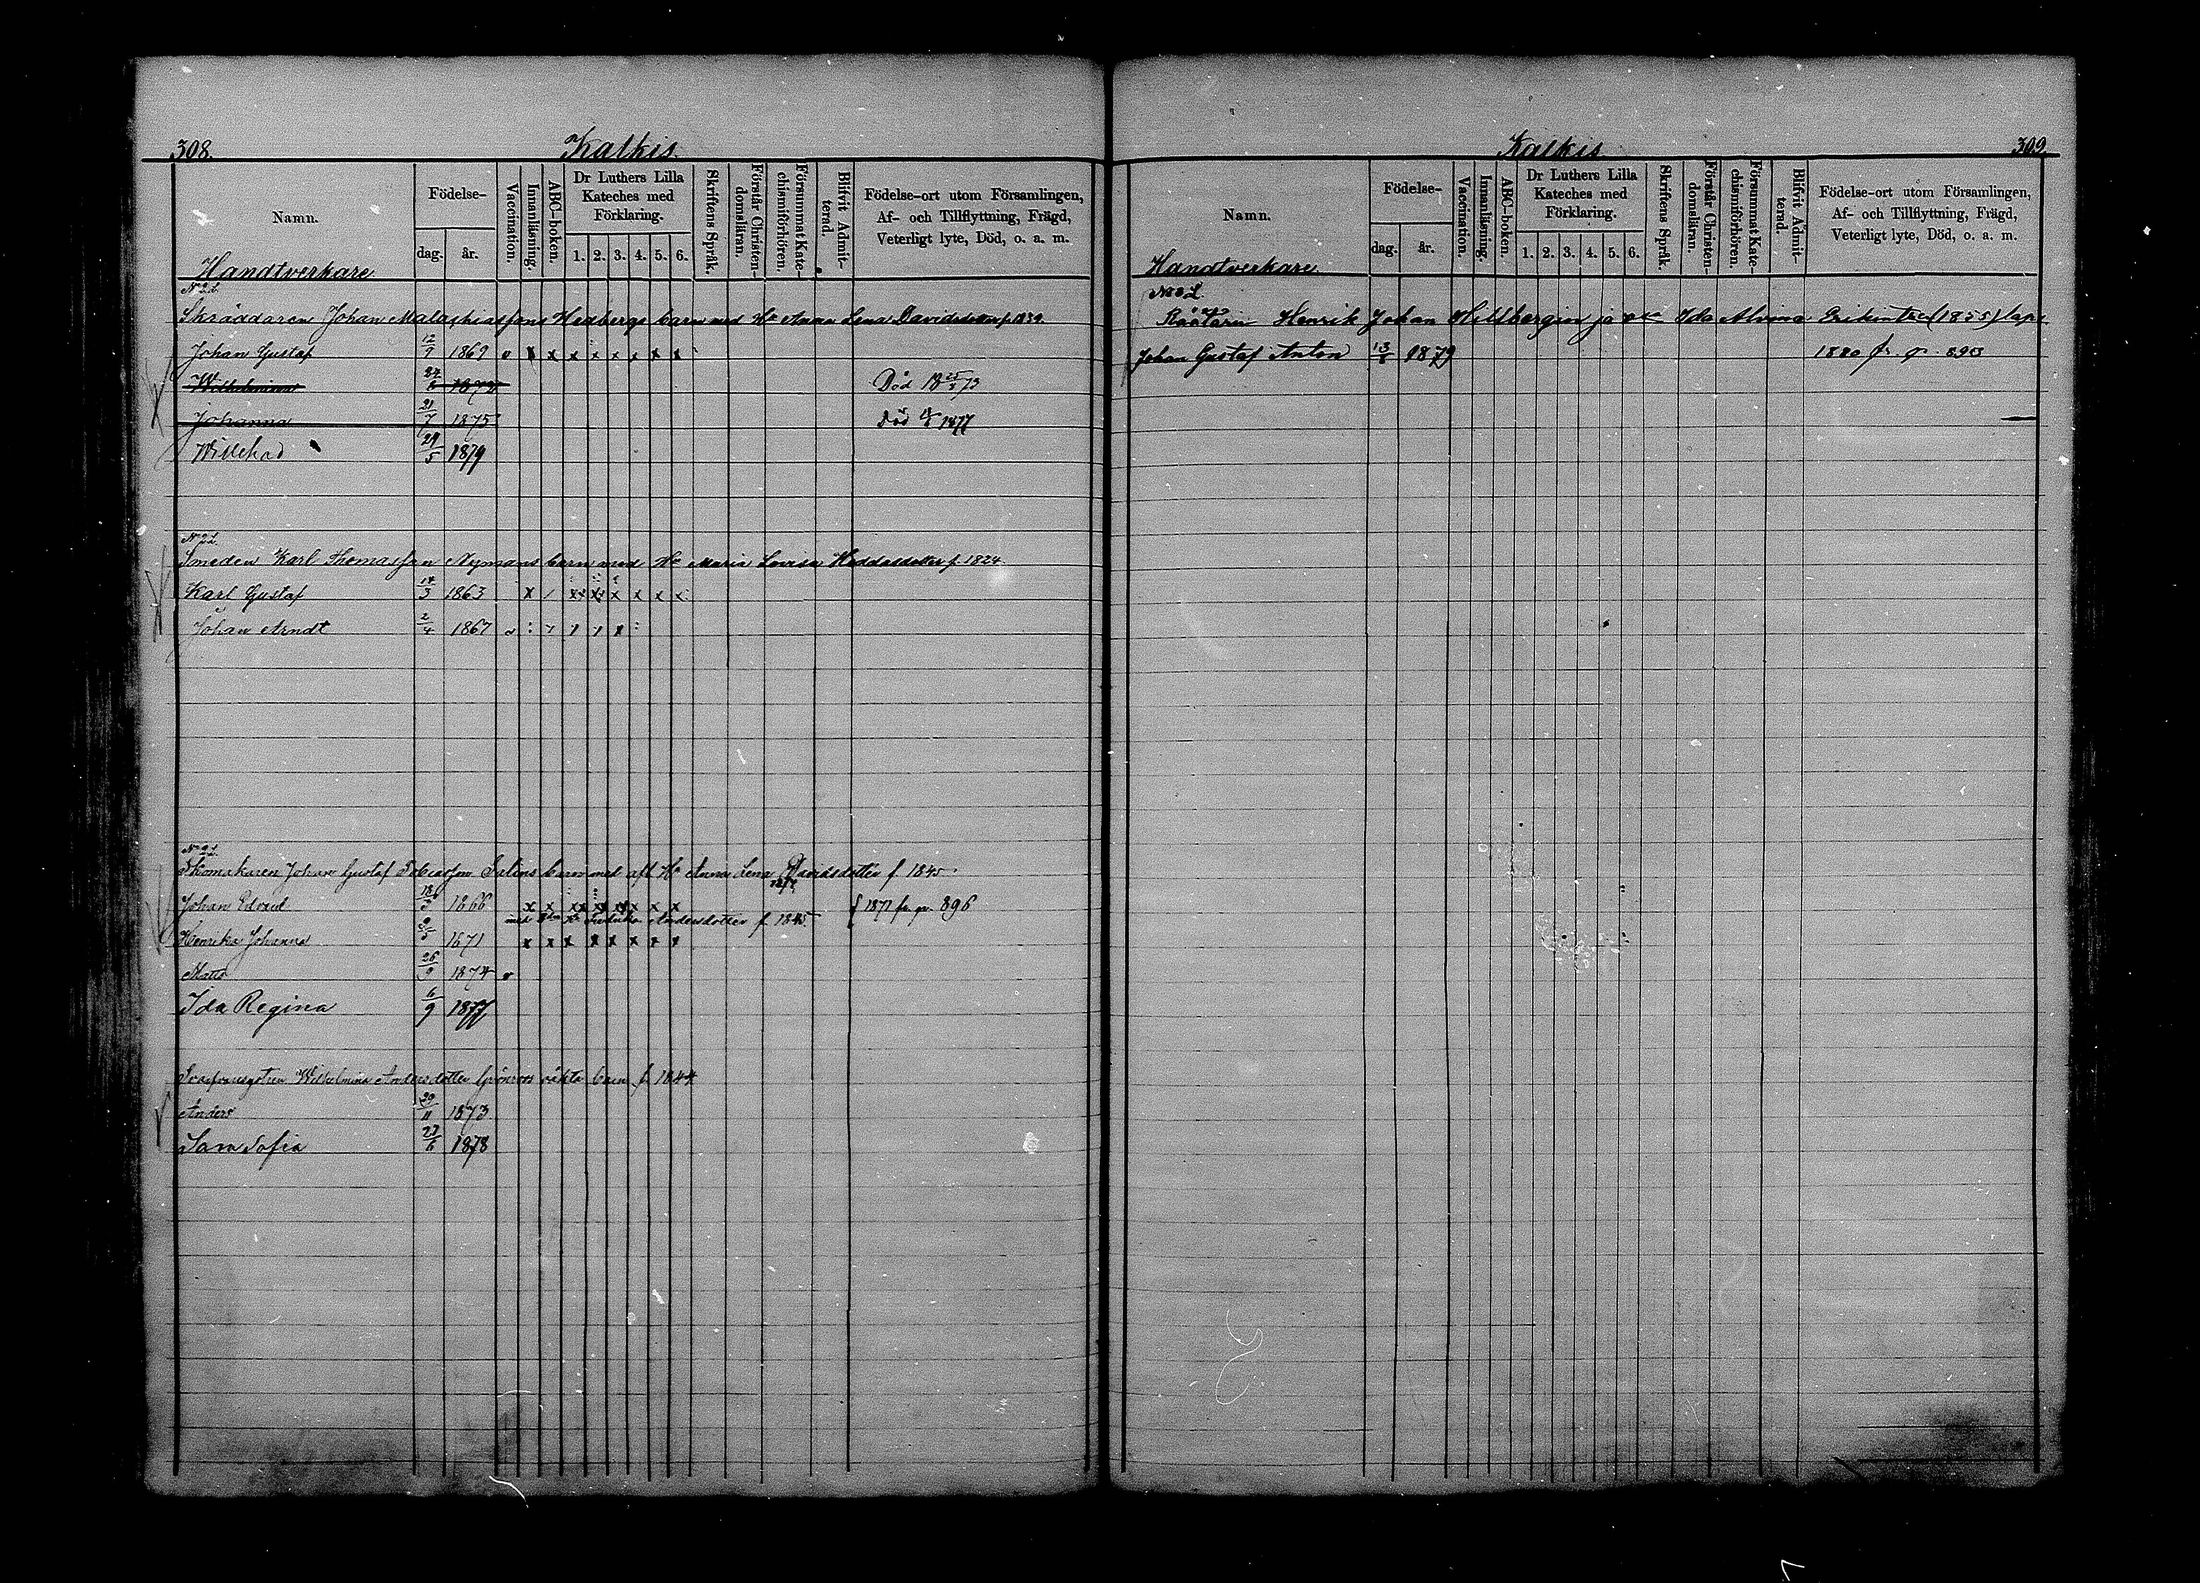 308.
Kalkis.
Namn.
Födelse-
dag.
år.
Vaccination.
Innanläsning.
ABC-boken.
Dr Luthers Lilla
Kateches med
Förklaring.
1. 2. 3. 4. 5. 6.
Skriftens Språk.
Förstår Christen-
domsläran.
Försummat Kate-
chismiförhören.
Blifvit Admit-
terad.
Födelse-ort utom Församlingen,
Af- och Tillflyttning, Frägd,
Veterligt lyte, Död, o. a. m.
Handtverkare
No 2 L.
Skräddaren Johan Malachiassons Hedbergs barn med Hu Anna Lena Davidsdotter f. 1839.
Johan Gustaf 12/9 1869 v x x x x x x x x
Wilhelmina 24/6 1872 Död 18 25/3 73
Johanna 21/7 1875 Död 1877
Willehad 29/5 1879
No 2 L.
Smeden Karl Thomasson Nymans barn med Hu Maria Lovisa Heddasdotter f. 1824
Karl Gustaf 14/3 1863 x / x x x x x x
Johan Arndt 2/4 1867 v
No 2 L.
Skomakaren Johan Gustaf Tobiasson Salins barn med aft Hu Anna Lena Davidsdotter f 1845.
Johan Edvard 18/3 1866 x x x x x x x x { 1871 fr. pr. 896
med Hu Fredrika Andersdotter f. 1845
Henrika Johanna 1871 x x x x x x x x
Mats 26/9 1874 v
Ida Regina 6/9 1877
Wilhelmina Andersdotter Grönroos oäkta barn f. 1844
Anders 29/11 1873
Sara Sofia 27/6 1878
Kalkis
309.
Namn.
Födelse-
dag.
år.
Vaccination.
Innanläsning.
ABC-boken.
Dr Luthers Lilla
Kateches med
Förklaring.
1. 2. 3. 4. 5. 6.
Skriftens Språk.
Förstår Christen-
domsläran.
Försummat Kate-
chismiförhören.
Blifvit Admit-
terad.
Födelse-ort utom Församlingen,
Af- och Tillflyttning, Frägd,
Veterligt lyte, Död, o. a. m.
Handtverkare.
No 2 L.
Räätäri Henrik Johan Hellbergin ja Ida Alvina (1855) laps
Johan Gustaf Anton 13/8 1879 1880 fr. pr. 893